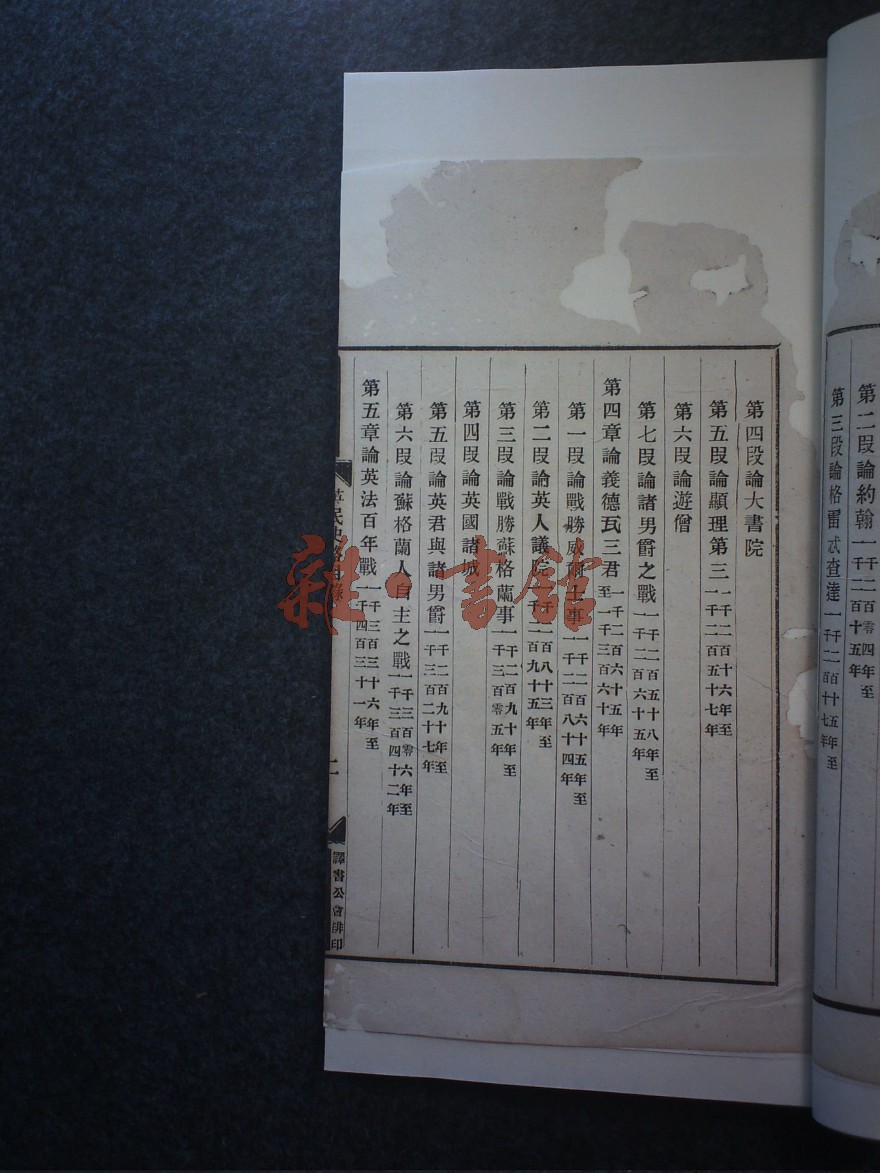 第二段論約翰一千二百零四年至一千二百十五年
第三段論格雷忒查達一千二百十五年至一千二百十七年
第四段論大書院
第五段論顯理第三一千二百十六年至一千二百五十七年
第六段論遊僧
第七段論諸男爵之戰一千二百五十八年至一千二百六十五年
第四章論義德瓦三君一千二百六十五年至一千三百六十年
第一段論戰勝威爾士事一千二百六十五年至一千二百八十四年
第二段論英人議院一千二百八十三年至一千二百九十五年
第三段論戰勝蘇格蘭事一千二百九十年至一千三百零五年
第四段論英國諸城
第五段論英君與諸男爵一千二百九十年至一千三百二十七年
第六段論蘇格蘭人自主之戰一千三百零六年至一千三百四十二年
第五章論英法百年戰一千三百三十六年至一千四百三十一年
民史略目錄
二
譯書公會排印
雜·書館